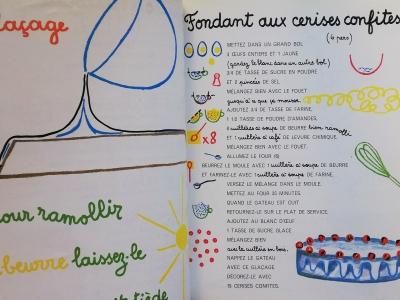 laçage
our ramollir
beurre laissez-le
tiède
Fondant aux cerises confites
(6 pers)
METTEZ DANS UN GRAND BOL
3 ŒUFS ENTIERS ET 1 JAUNE
(gardez le blanc dans un autre bol)
3/4 DE TASSE DE SUCRE EN POUDRE
ET 2 pincées DE SEL.
MÉLANGEZ BIEN AVEC LE FOUET
jusqu'à ce que ça mousse.
AJOUTEZ 3/4 TASSE DE FARINE,
1 1/2 TASSE DE POUDRE D'AMANDES,
8 cuillères à soupe DE BEURRE bien ramolli
x8
ET 1 cuillère à café DE LEVURE CHIMIQUE.
MÉLANGEZ BIEN AVEC LE FOUET.
ALLUMEZ LE FOUR (6)
BEURREZ LE MOULE AVEC 1 cuillère à soupe DE BEURRE
ET FARINEZ-LE AVEC 1 cuillère à soupe DE FARINE.
VERSEZ LE MÉLANGE DANS LE MOULE.
METTEZ AU FOUR 35 MINUTES.
QUAND LE GATEAU EST CUIT
RETOURNEZ-LE SUR LE PLAT DE SERVICE.
AJOUTEZ AU BLANC D'ŒUF
1 TASSE DE SUCRE GLACE
MÉLANGEZ BIEN
avec la cuillère en bois.
NAPPEZ LE GATEAU
AVEC CE GLAÇAGE
DÉCOREZ-LE AVEC
15 CERISES CONFITES.